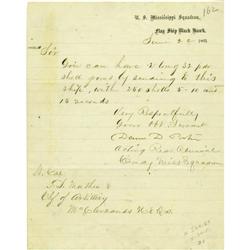 162
U. S. Mississippi Squadron,
Flag Ship Black Hawk,
June 186
Sir
You can have 2 long 32 pdr
shell guns by sending to this
ship, with 240 shells 5-10 and
15 seconds
Very Respectfully
Your Obt Servant
David D. Porter
Acting Rear Admiral
Comdg Miss Squadron
Chf of Artillery